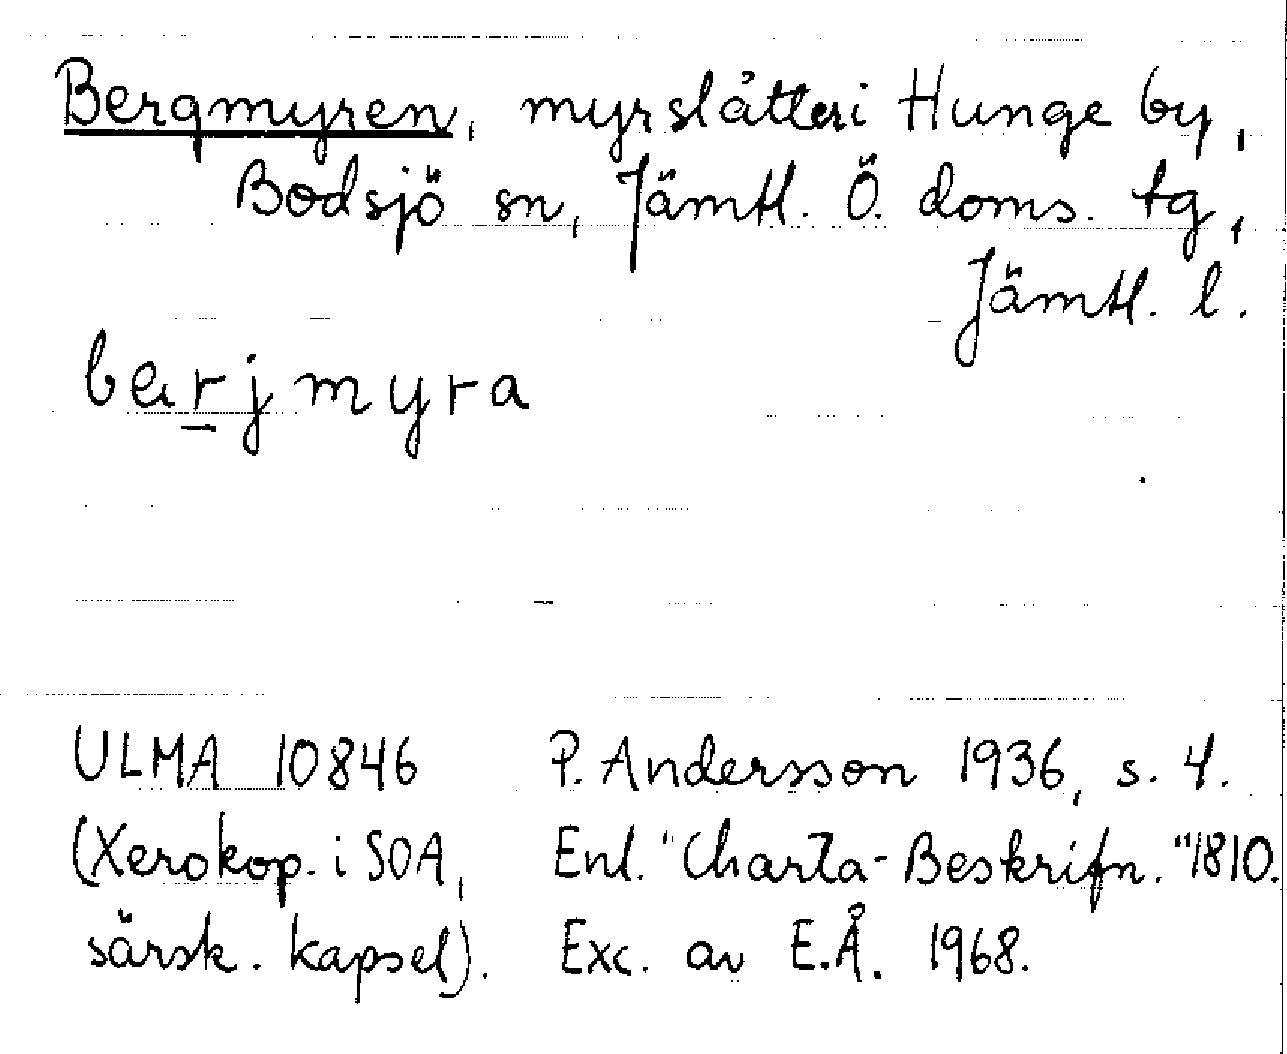 Bergmyren, myrslåtter i Hunge by,
Bodsjö sn, Jämtl. Ö. doms. tg,
Jämtl. l.
barjmyra
ULMA 10846 P. Andersson 1936, s. 4.
(Xerokop. i SOA, Enl. "Charta-Beskrifn." 1810.
särsk. kapsel). Exc. av E.Å. 1968.